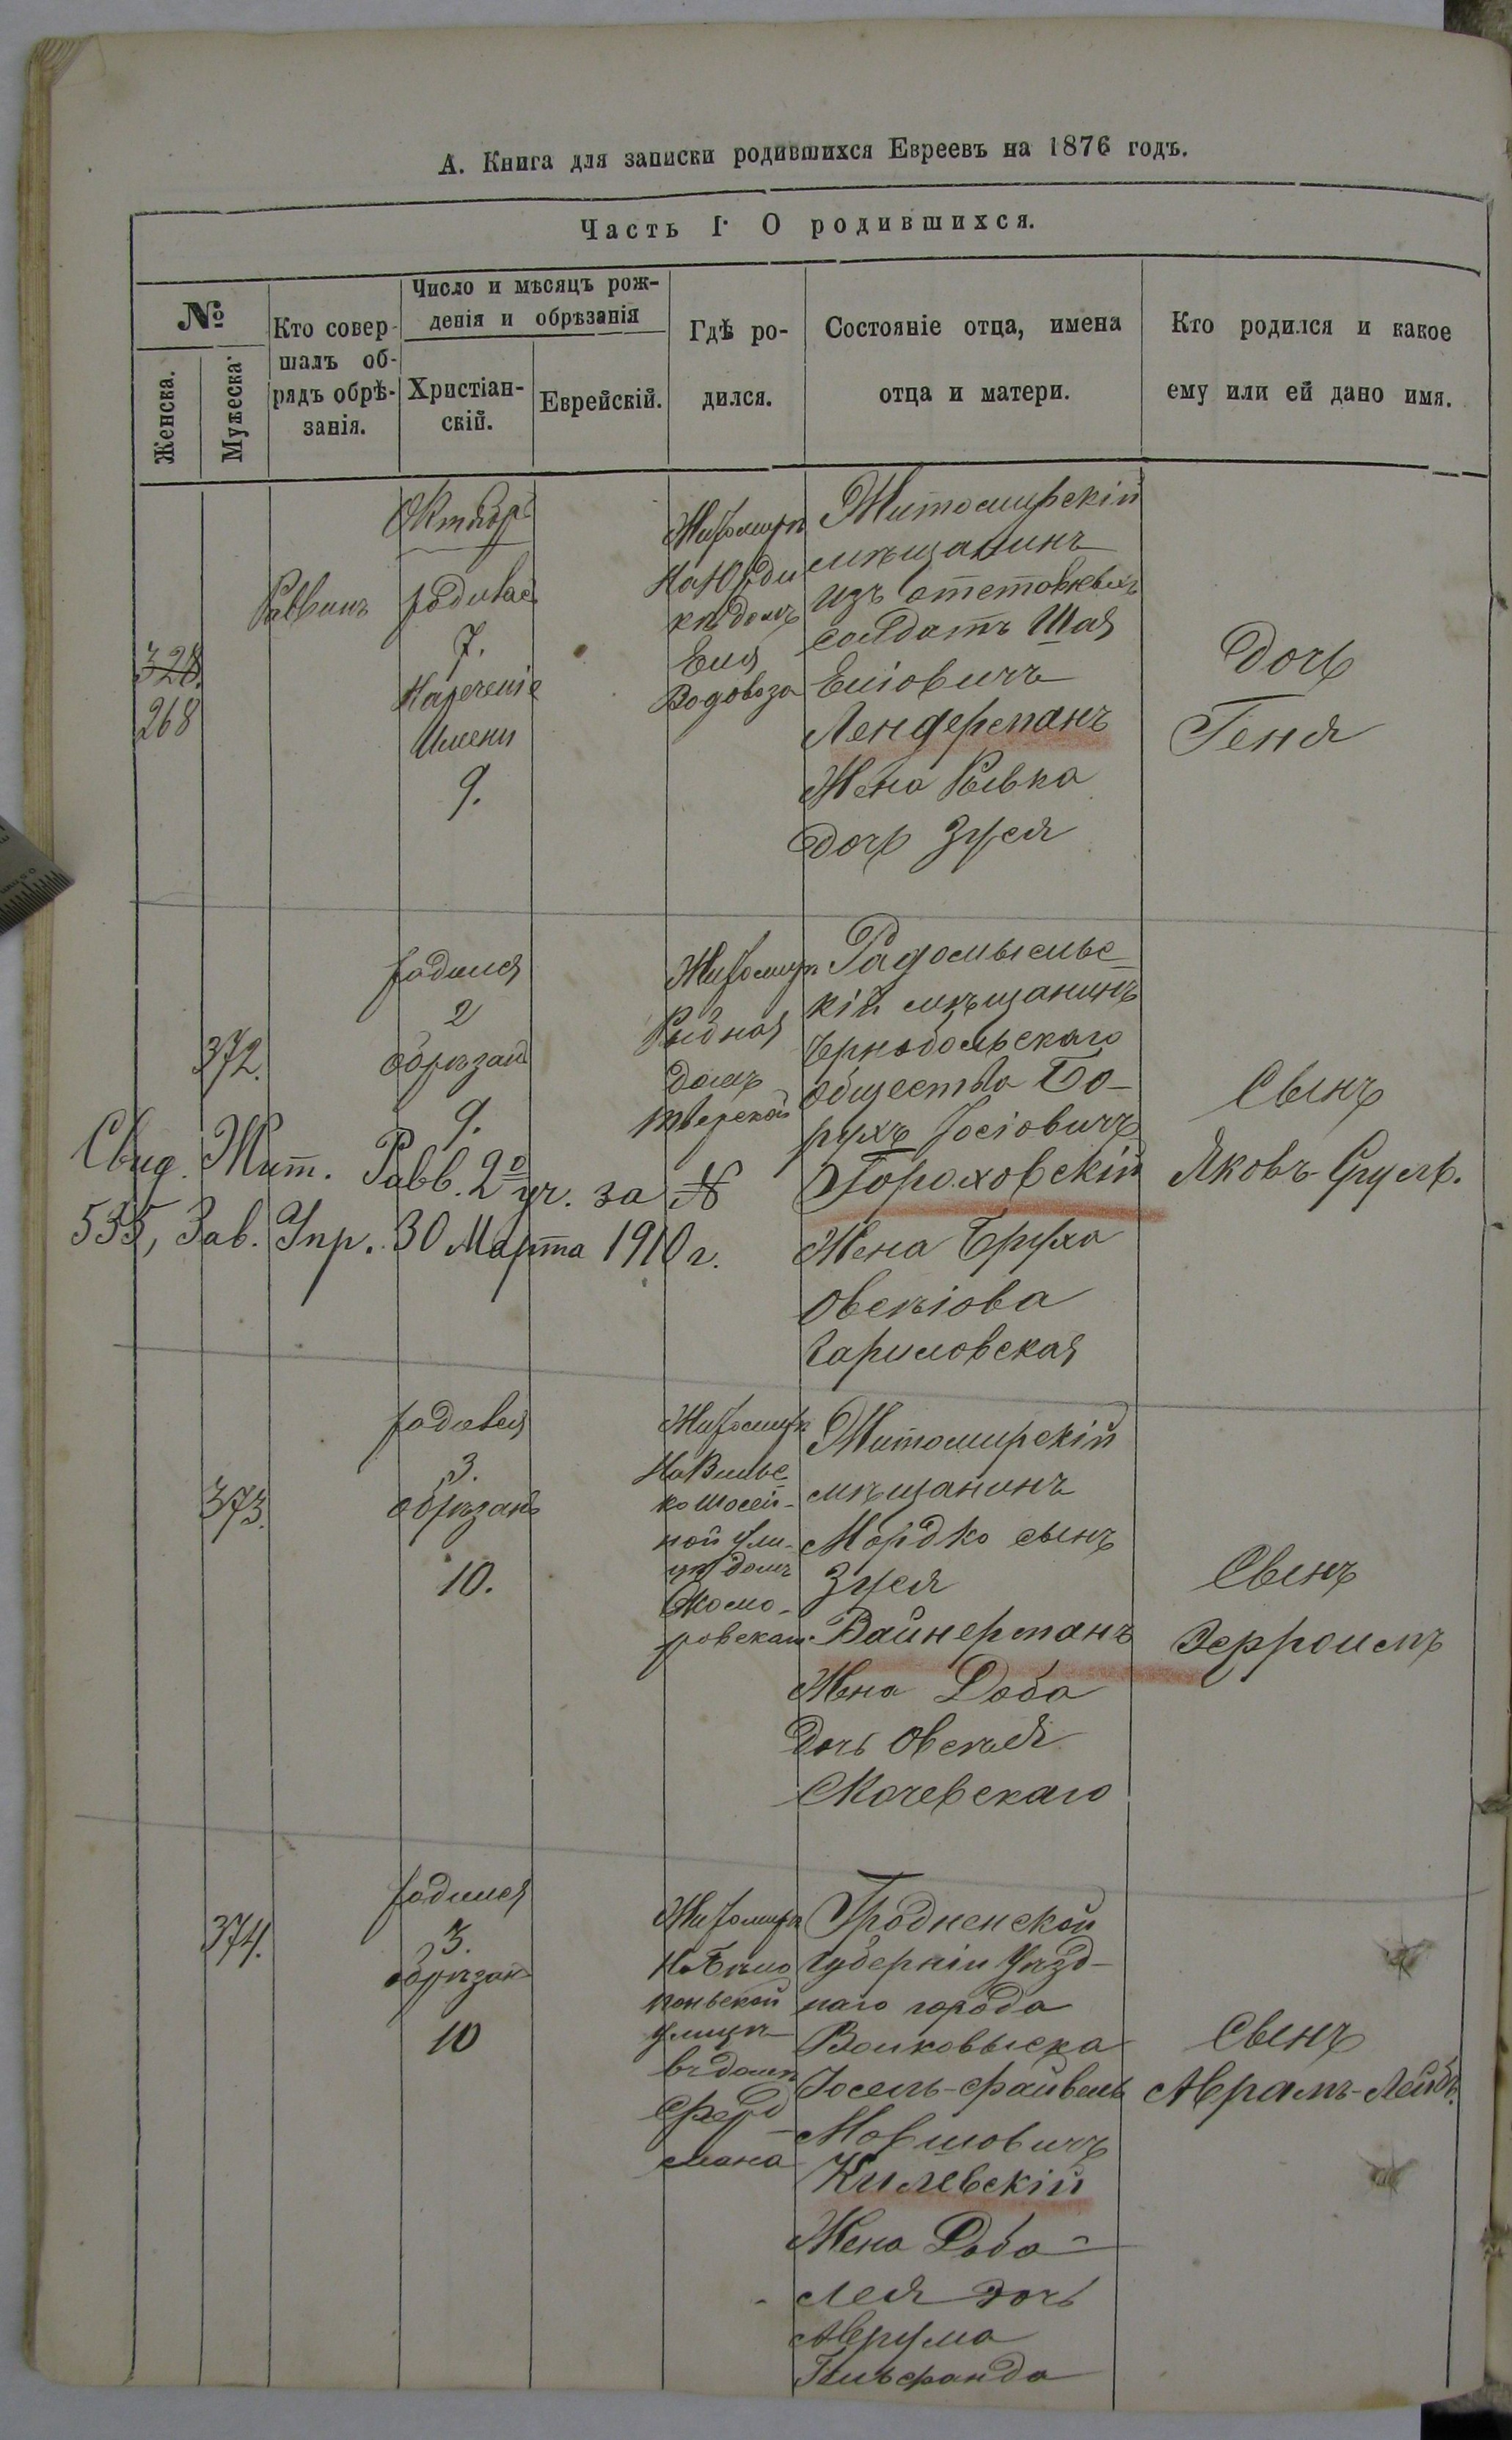 А. Книга для записки родившихся Евреевъ на 1876 годъ.
Часть I. О родившихся.
№
Женска.
Мужеска
Кто совер-
шалъ об-
рядъ обрѣ-
занія.
Число и мѣсяцъ рож-
денія и обрѣзанія
Христіан-
скій.
Еврейскій.
Гдѣ ро-
дился.
Состояніе отца, имена
отца и матери.
Кто родился и какое
ему или ей дано имя.
328.
268
Раввинъ
Октябрь
родилась
7.
Нареченіе
Имени
9.
Житомиръ
домъ
Еля
Водовоза
Житомирскій
мѣщанинъ
изъ отставныхъ
солдатъ Шая
Еліовичъ
Лендерманъ
Жена Ривка
дочь Зуся
Дочь
Геня
372.
родился
2
обрѣзанъ
9.
Житомиръ
Рыбная
домъ
Тверской
Радомысльс-
кій мѣщанинъ
Чернобольскаго
общества Бо-
рухъ Іосіовичъ
Гороховскій
Жена Бруха
Овсѣіова
Сынъ
Яковъ-Сруль.
Свид. Жит. Равв. 2º уч. за №
535, Зав. Упр. 30 Марта 1910 г.
373.
родился
3.
обрѣзанъ
10.
Житомиръ
На Вильс
ко шосей-
ной ули-
цѣ домъ
Скомо-
ровскаго
Житомирскій
мѣщанинъ
Мордко сынъ
Зуся
Вайнерманъ
Жена Доба
дочь Овсѣя
Скочевскаго
Сынъ
Эфроимъ
374.
родился
3.
обрѣзанъ
10
Житомиръ
улицѣ
въ домѣ
Фред
мана
Гродненской
губерніи Уѣзд-
наго города
Волковыска
Іосель-Файвель
Мовшовичъ
Килевскій
Жена Доба-
Лея дочь
Аврума
Гильфанда
Сынъ
Аврамъ-Лейбъ.